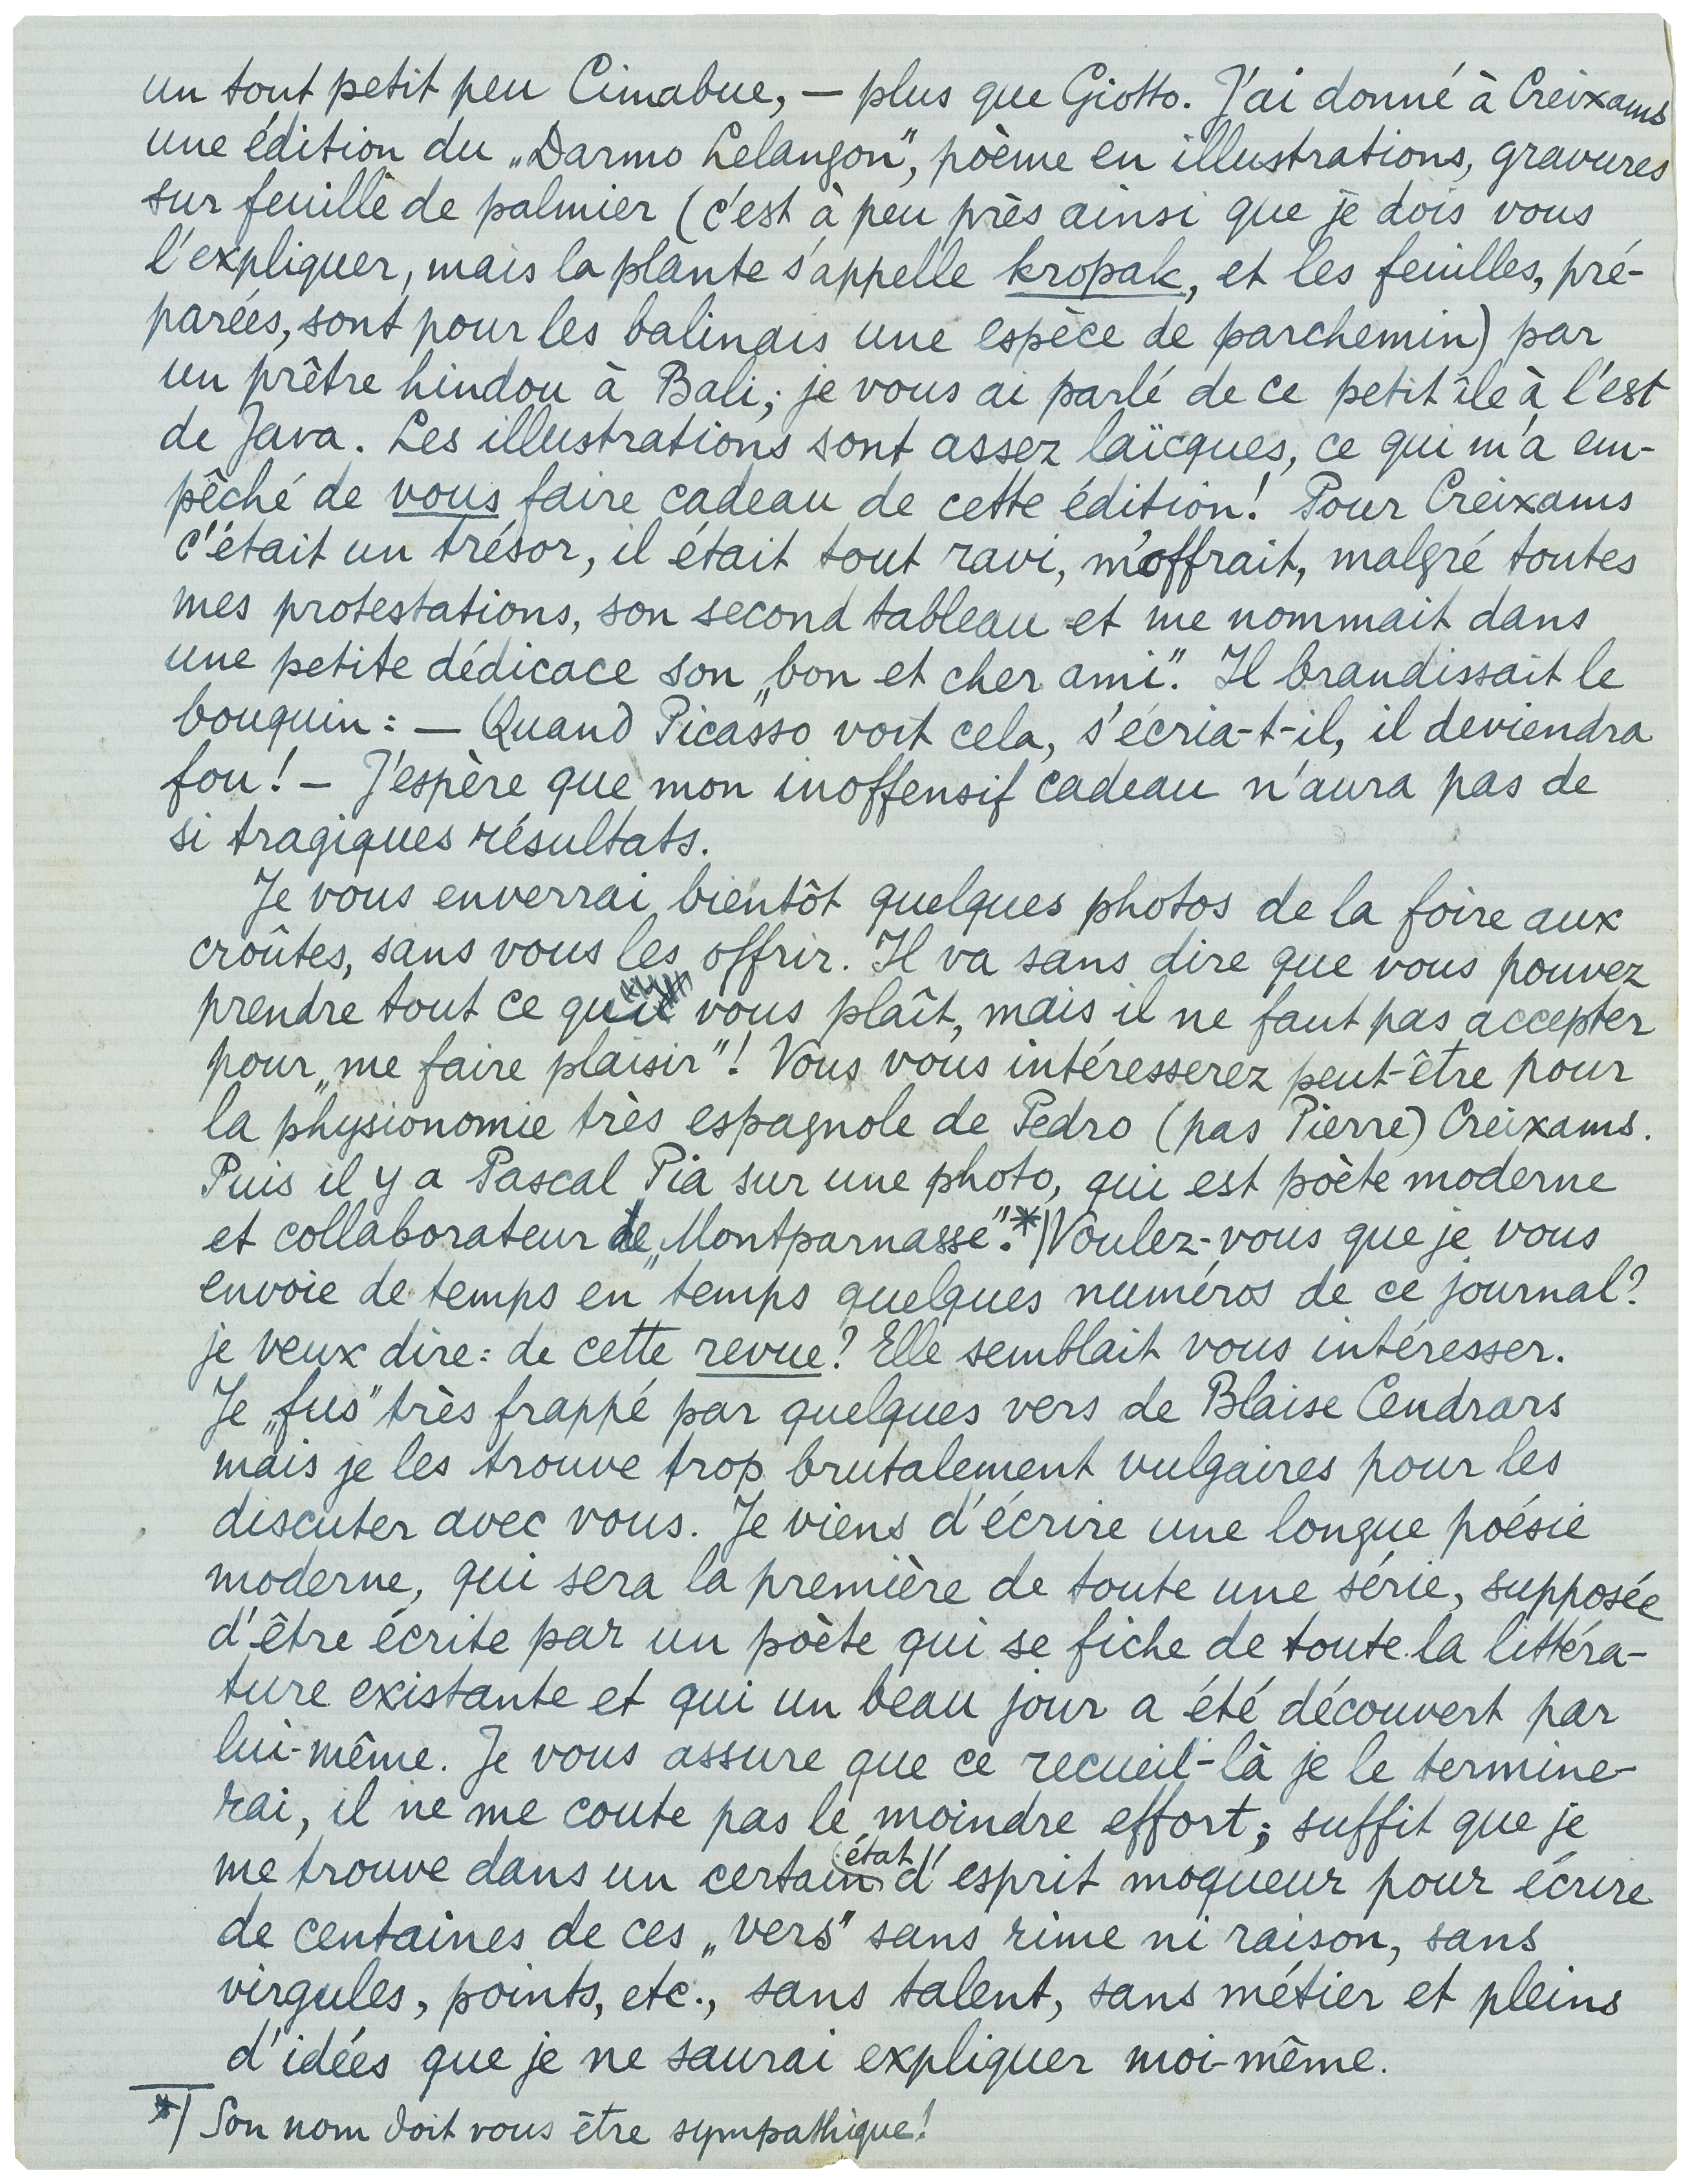 un tout petit peu Cimabue, — plus que Giotto. J'ai donné à Creixams
une édition du „Darmo Lelangon”, poème en illustrations, gravures
sur feuille de palmier (c'est à peu près ainsi que je dois vous
l'expliquer, mais la plante s'appelle kropak, et les feuilles, pré-
parées, sont pour les balinais une espèce de parchemin) par
un prêtre hindou à Bali; je vous ai parlé de ce petit île à l'est
de Java. Les illustrations sont assez laïcques, ce qui m'a em-
pêché de vous faire cadeau de cette édition! Pour Creixams
c'était un trésor, il était tout ravi, m'offrait, malgré toutes
mes protestations, son second tableau et me nommait dans
une petite dédicace son „bon et cher ami”. Il brandissait le
bouquin: — Quand Picasso voit cela, s'écria-t-il, il deviendra
fou! — J'espère que mon inoffensif cadeau n'aura pas de
si tragiques résultats.
Je vous enverrai bientôt quelques photos de la foire aux
croûtes, sans vous les offrir. Il va sans dire que vous pouvez
prendre tout ce qui vous plaît, mais il ne faut pas accepter
pour „me faire plaisir”! Vous vous intéresserez peut-être pour
la physionomie très espagnole de Pedro (pas Pierre) Creixams.
Puis il y a Pascal Pia sur une photo, qui est poète moderne
et collaborateur de „Montparnasse”.*) Voulez-vous que je vous
envoie de temps en temps quelques numéros de ce journal?
je veux dire: de cette revue? Elle semblait vous intéresser.
Je „fus” très frappé par quelques vers de Blaise Cendrars
mais je les trouve trop brutalement vulgaires pour les
discuter avec vous. Je viens d'écrire une longue poésie
moderne, qui sera la première de toute une série, supposée
d'être écrite par un poète qui se fiche de toute la littéra-
ture existante et qui un beau jour a été découvert par
lui-même. Je vous assure que ce recueil-là je le termine-
rai, il ne me coute pas le moindre effort; suffit que je
me trouve dans un certain état d'esprit moqueur pour écrire
de centaines de ces „vers” sans rime ni raison, sans
virgules, points, etc., sans talent, sans métier et pleins
d'idées que je ne saurai expliquer moi-même.
*) Son nom doit vous être sympathique!